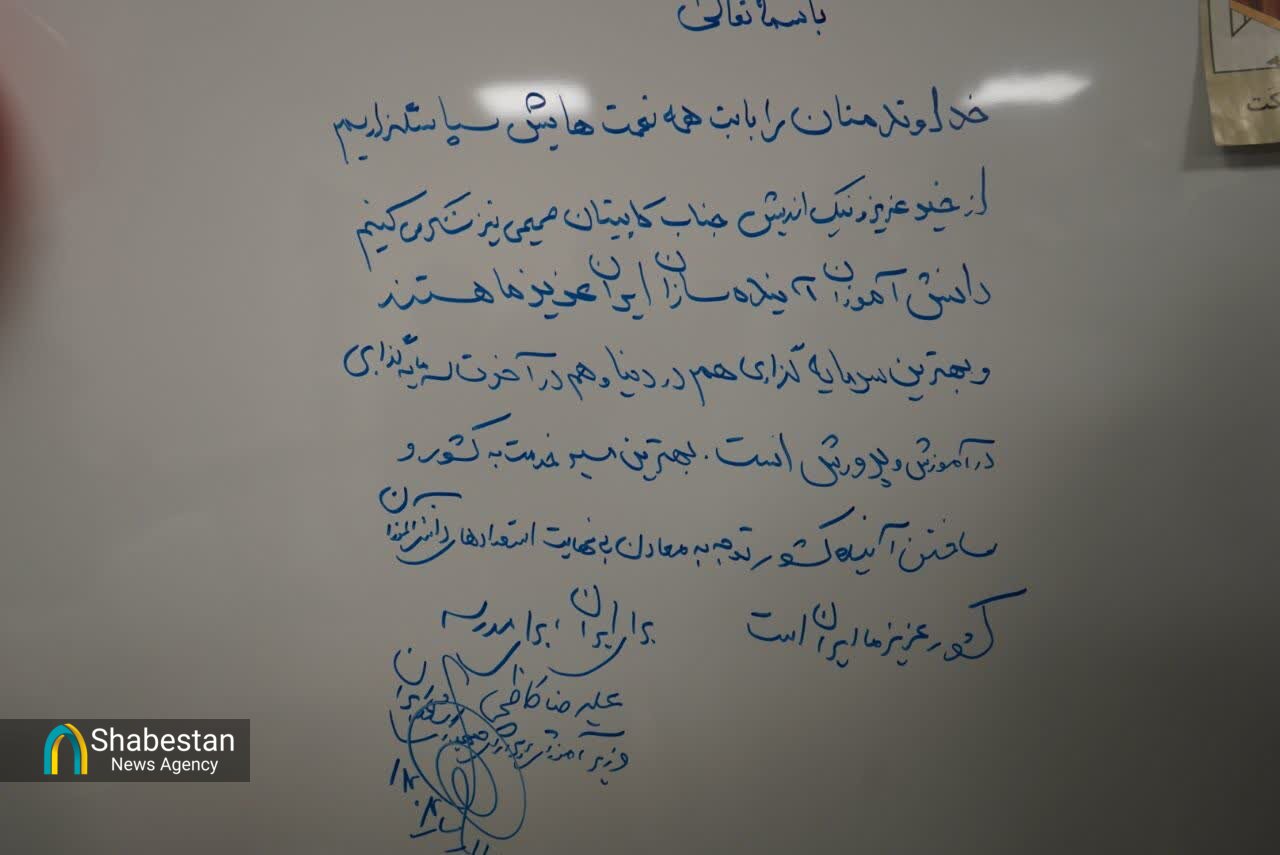 باسمه تعالی
خداوند منان را بابت همه نعمت هایش سپاسگزاریم
از خیر عزیز و نیک اندیش جناب کاپیتان صمیمی نیز تشکر می کنیم
دانش آموزان آینده سازان ایران عزیز ما هستند
و بهترین سرمایه گذاری هم در دنیا و هم در آخرت سرمایه گذاری
در آموزش و پرورش است. بهترین مسیر خدمت به کشور و
ساختن آینده کشور توجه به معادن بی نهایت استعدادهای دانش آموزان
کشور عزیز ما ایران است
برای ایران، برای مدرسه
علیرضا کاظمی
وزیر آموزش و پرورش
Shabestan
News Agency